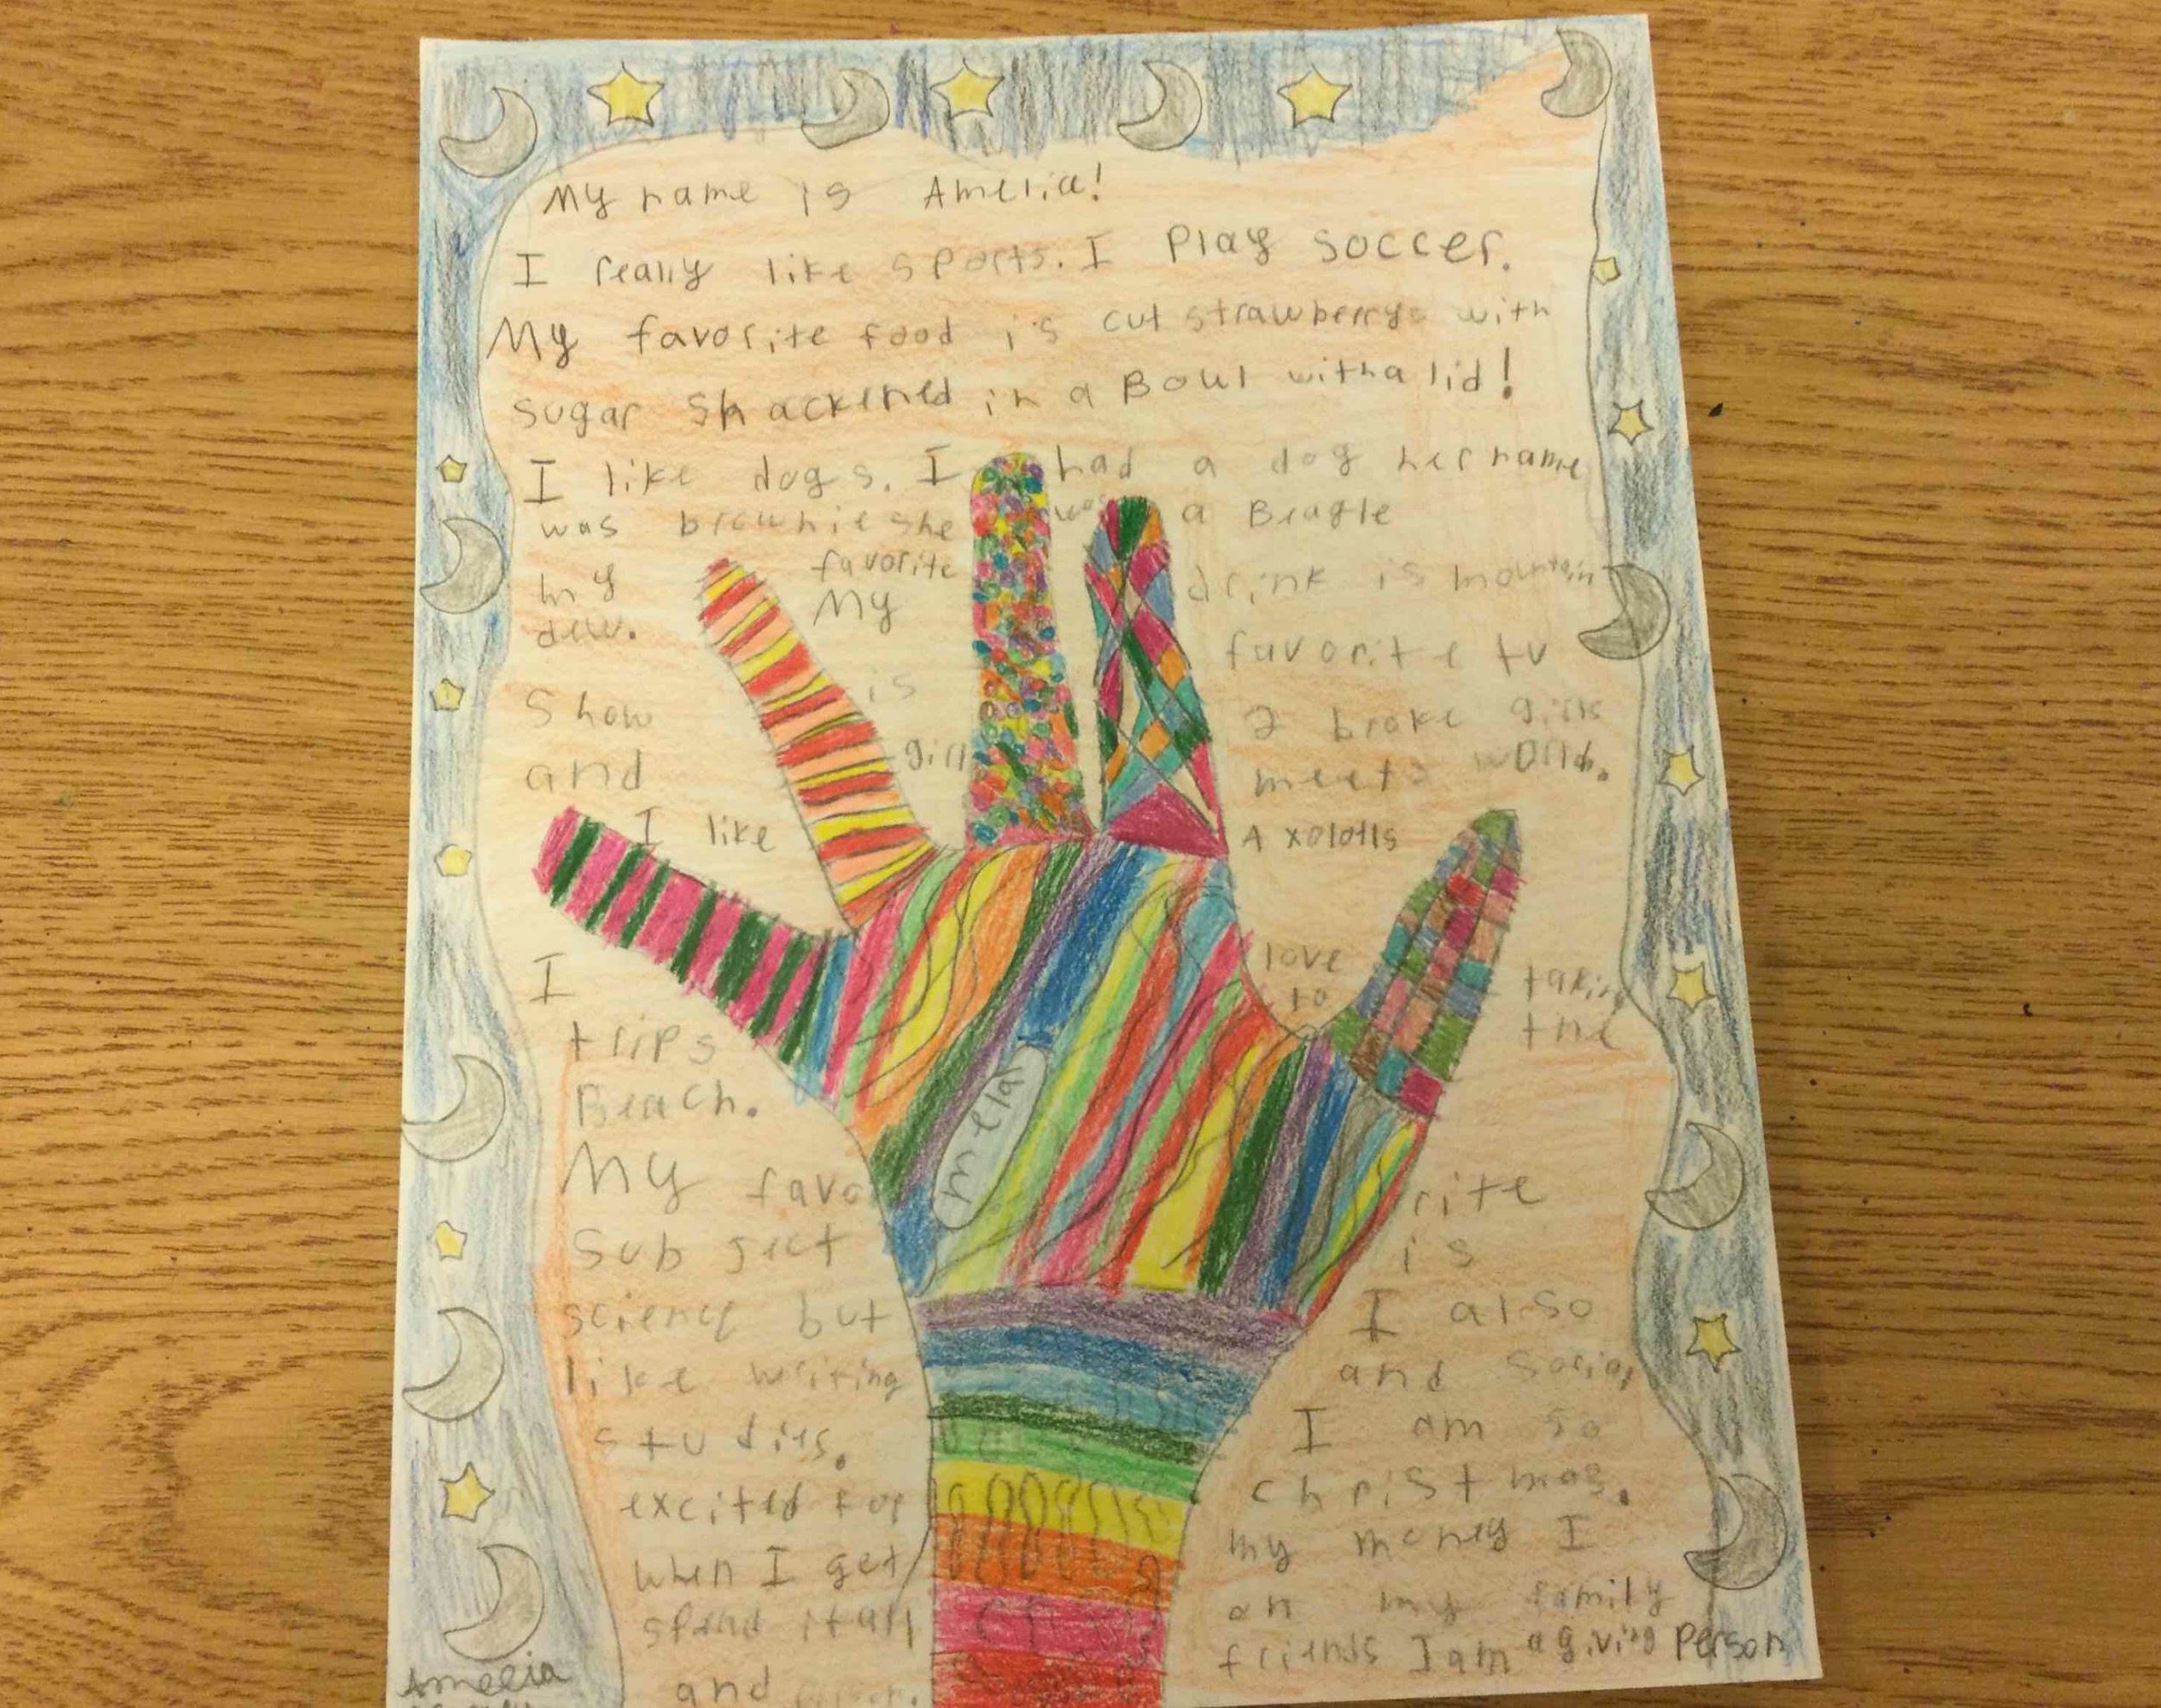 My name is Amelia!
I really like sports. I Play soccer.
My favorite food is cut strawberrys with
sugar Shackened in a Bowl with a lid!
I like dogs. I had a dog her name
was brownie she was a Beagle
my favorite drink is mountain
dew. My favorite tv
Show is 2 broke girls
and girl meets world.
I like Axolotls
I love taking
trips to the
Beach.
My favo rite
Subject is
science but I also
like writing and Social
studies. I am so
excited for christmas.
when I get my money I
spend it all on my family
and friends I am a giving Person
mela
Amelia